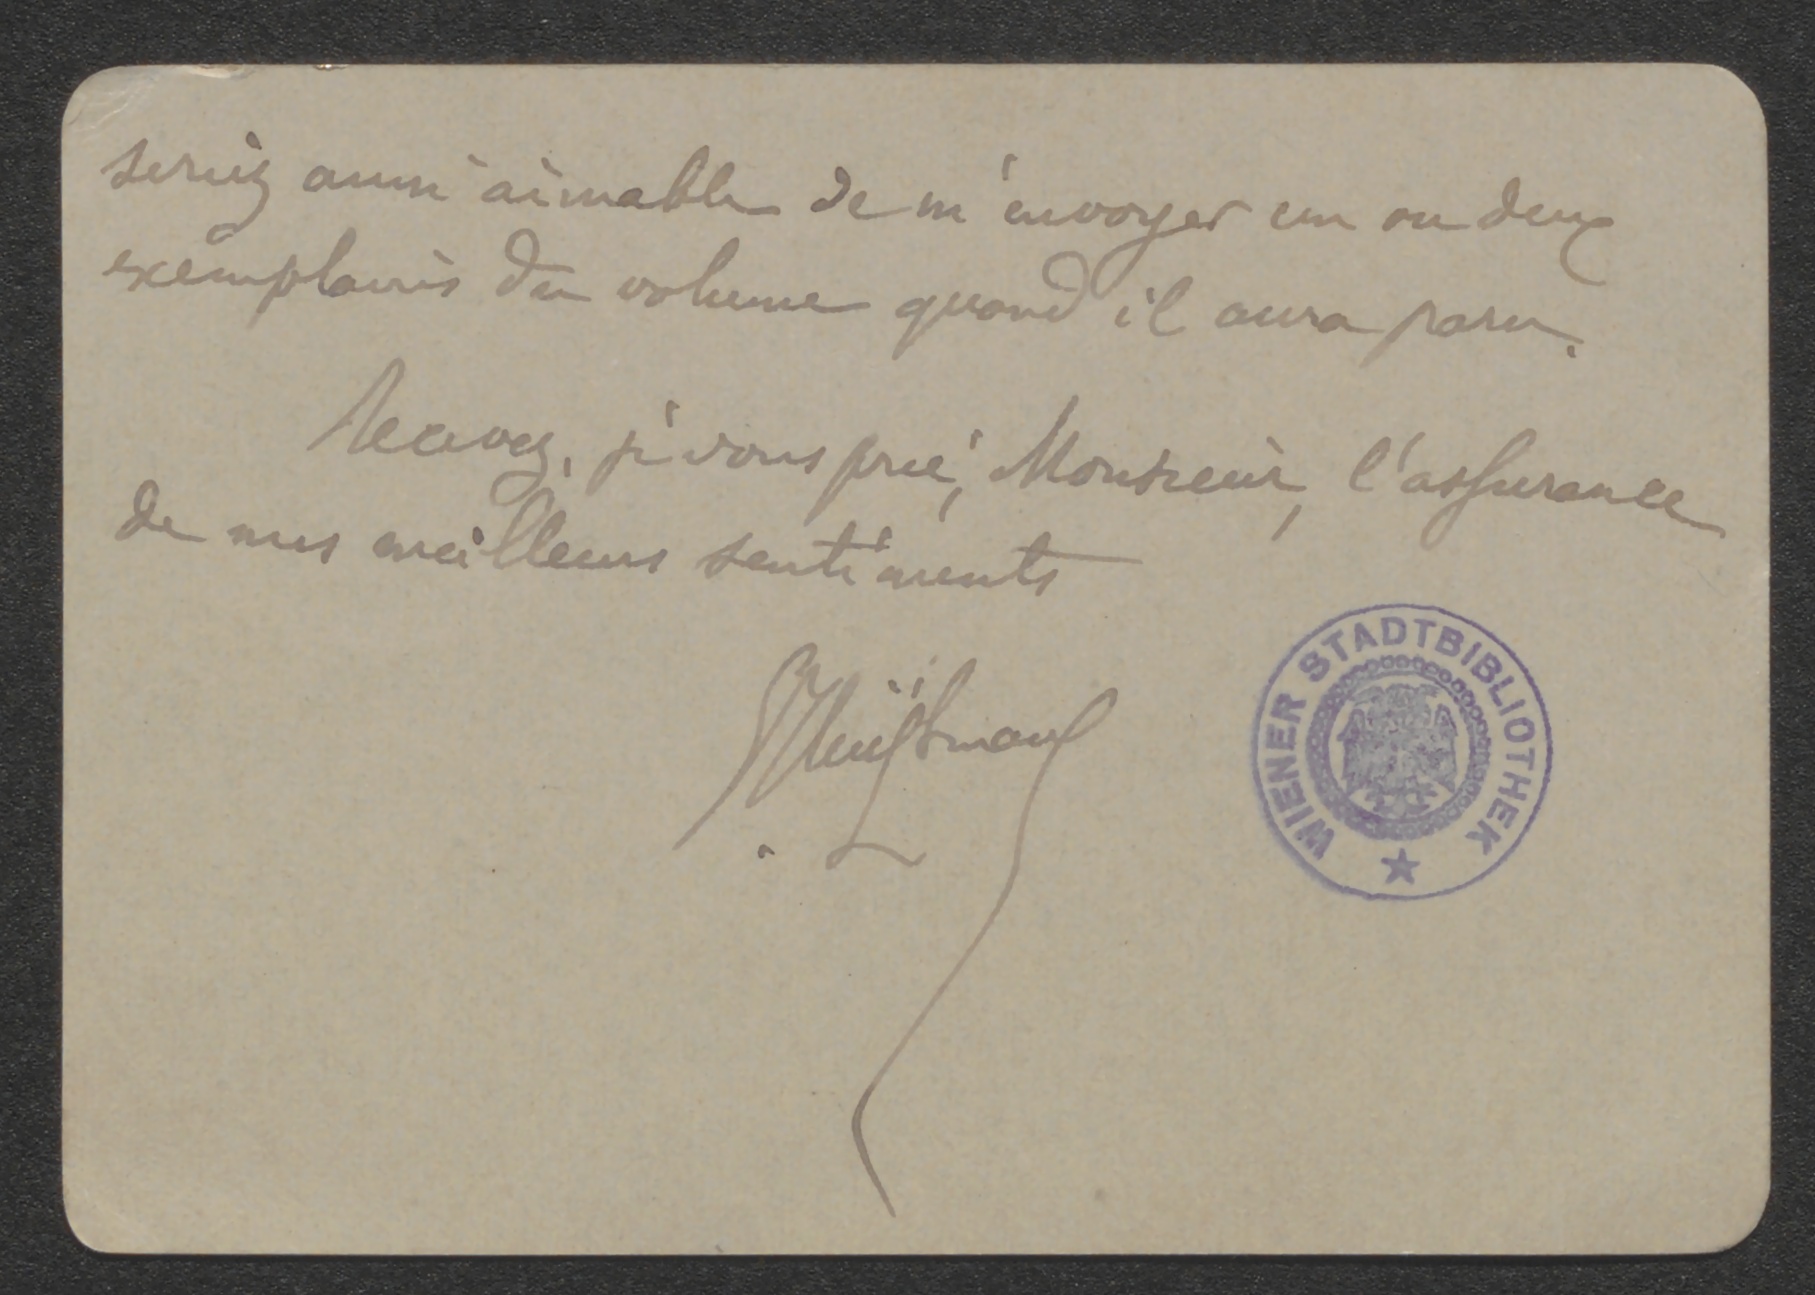 seriez aussi aimable de m'envoyer un ou deux
exemplaires du volume quand il aura paru.
Recevez, je vous prie, Monsieur, l'assurance
de mes meilleurs sentiments
WIENER STADTBIBLIOTHEK